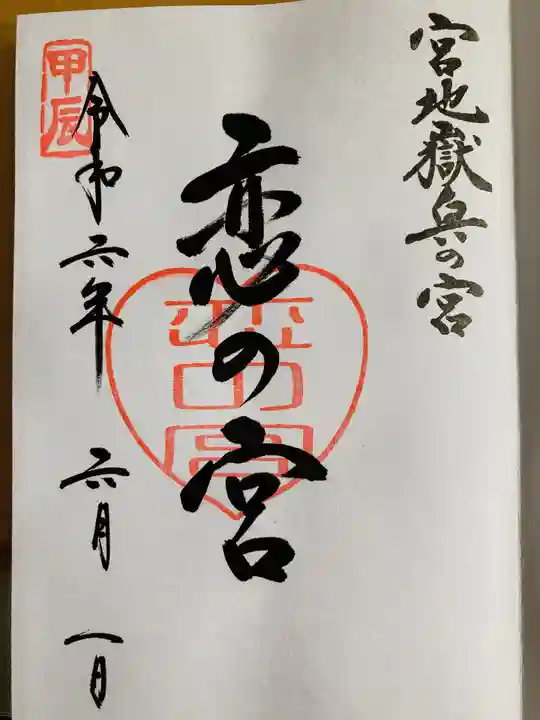 宮地嶽奥の宮
恋の宮
恋の宮
甲辰
令和六年 六月 一日